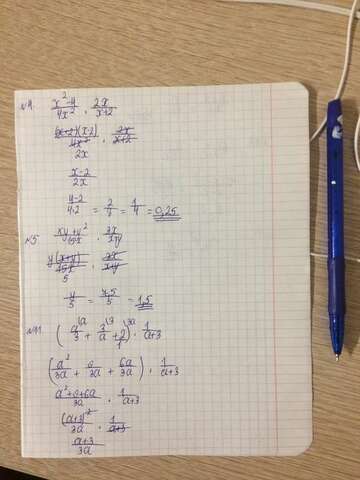 №4 (x²-4)/(4x²) · 2x/(x+2)
((x+2)(x-2))/(4x²) · 2x/(x+2)
2x
(x-2)/(2x)
(4-2)/(4·2) = 2/8 = 1/4 = 0,25
№5 (xy+y²)/(15x) · 3x/(x+y)
(y(x+y))/(15x) · 3x/(x+y)
5
y/5 = 7,5/5 = 1,5
№11 (a/3 + 3/a + 2/1) · 1/(a+3)
(a²/3a + 9/3a + 6a/3a) · 1/(a+3)
(a²+9+6a)/(3a) · 1/(a+3)
(a+3)²/(3a) · 1/(a+3)
(a+3)/(3a)